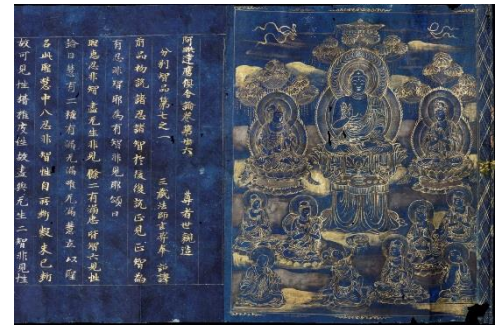 阿毗達磨俱舍論卷第廿六　尊者世親造
分別智品第七之一　三藏法師玄奘奉　詔譯
前品初說諸忍諸智於後復說正見正智為
有忍非智耶為有智非見耶頌曰
聖慧忍非智　盡无生非見　餘二有漏慧　皆智六見性
論曰慧有二種有漏无漏唯无漏慧立以聖
名此聖慧中八忍非智性自所斷疑未已斷
故可見性推度性故盡與无生二智非見性